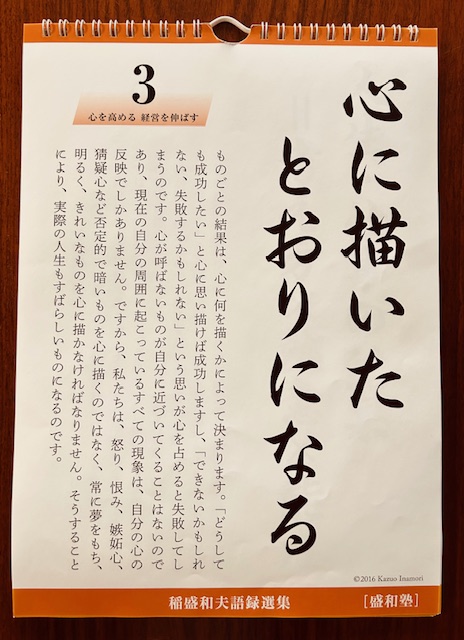 3
心を高める 経営を伸ばす
心に描いた
とおりになる
ものごとの結果は、心に何を描くかによって決まります。「どうして
も成功したい」と心に思い描けば成功しますし、「できないかもしれ
ない、失敗するかもしれない」という思いが心を占めると失敗してし
まうのです。心が呼ばないものが自分に近づいてくることはないので
あり、現在の自分の周囲に起こっているすべての現象は、自分の心の
反映でしかありません。ですから、私たちは、怒り、恨み、嫉妬心、
猜疑心など否定的で暗いものを心に描くのではなく、常に夢をもち、
明るく、きれいなものを心に描かなければなりません。そうすること
により、実際の人生もすばらしいものになるのです。
©2016 Kazuo Inamori
稲盛和夫語録選集
[盛和塾]